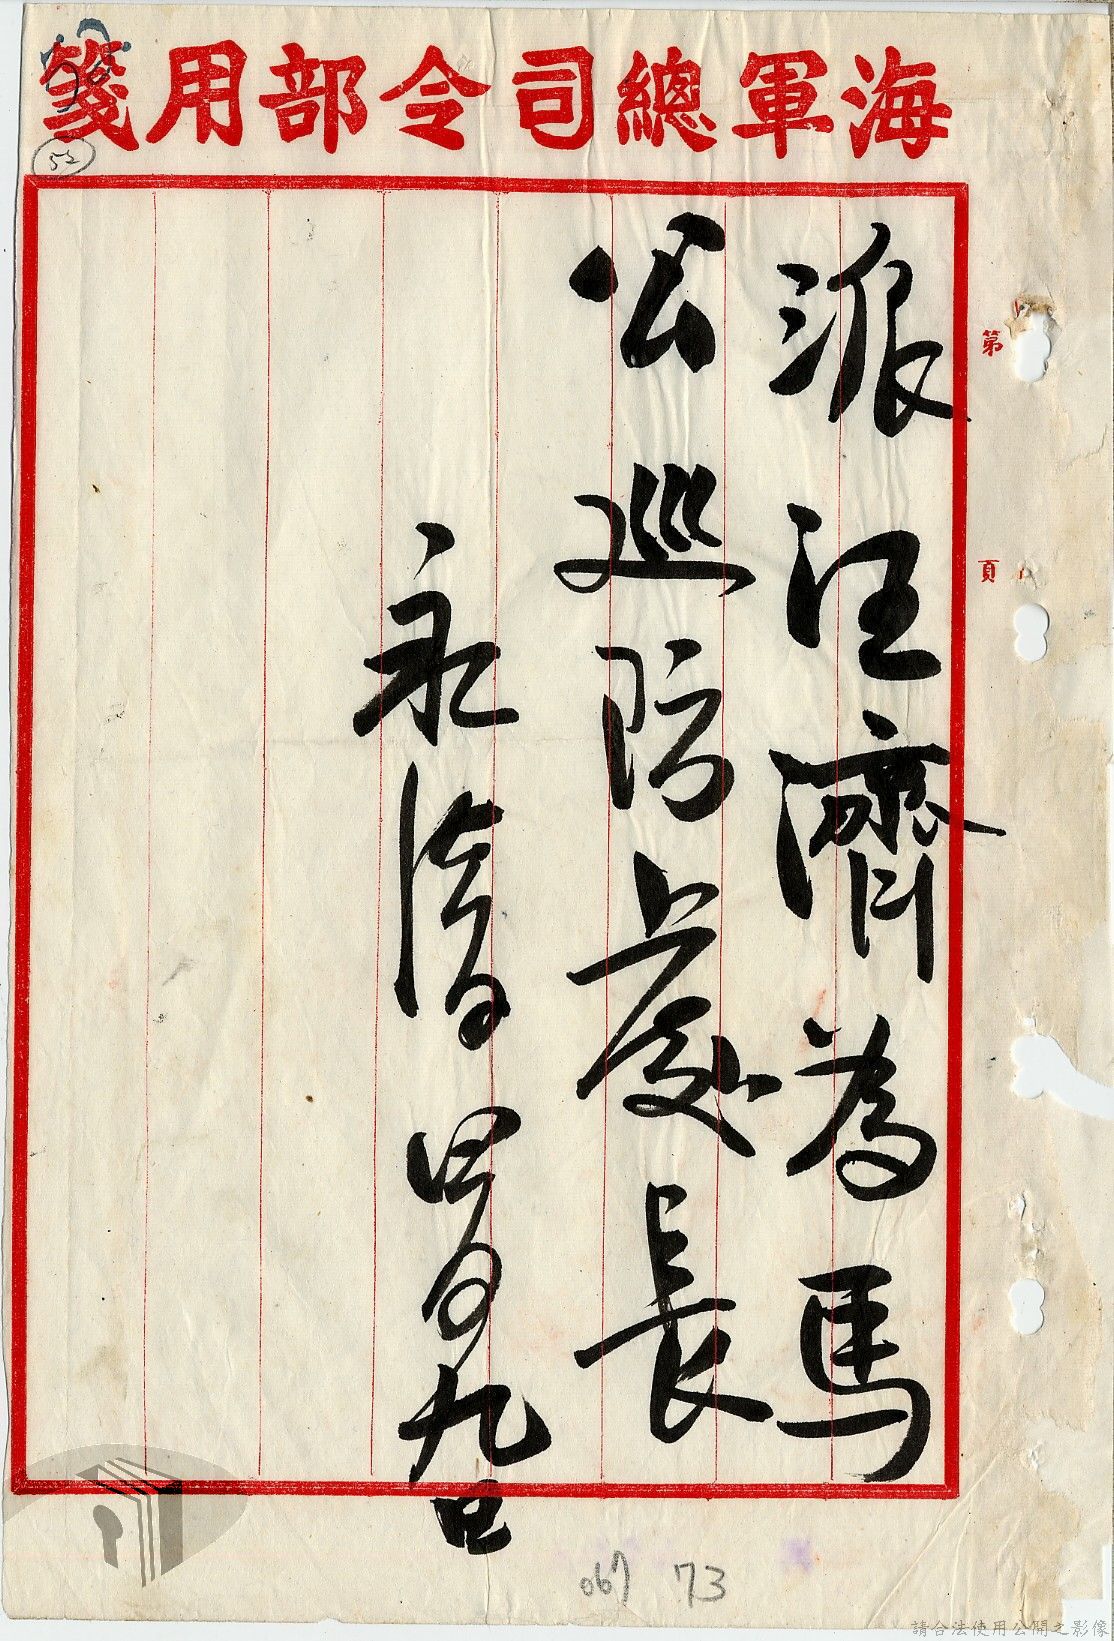 海軍總司令部用箋
52
第 頁
派汪濟為馬
公巡防處長
永清 四月九日
067 73
請合法使用公開之影像